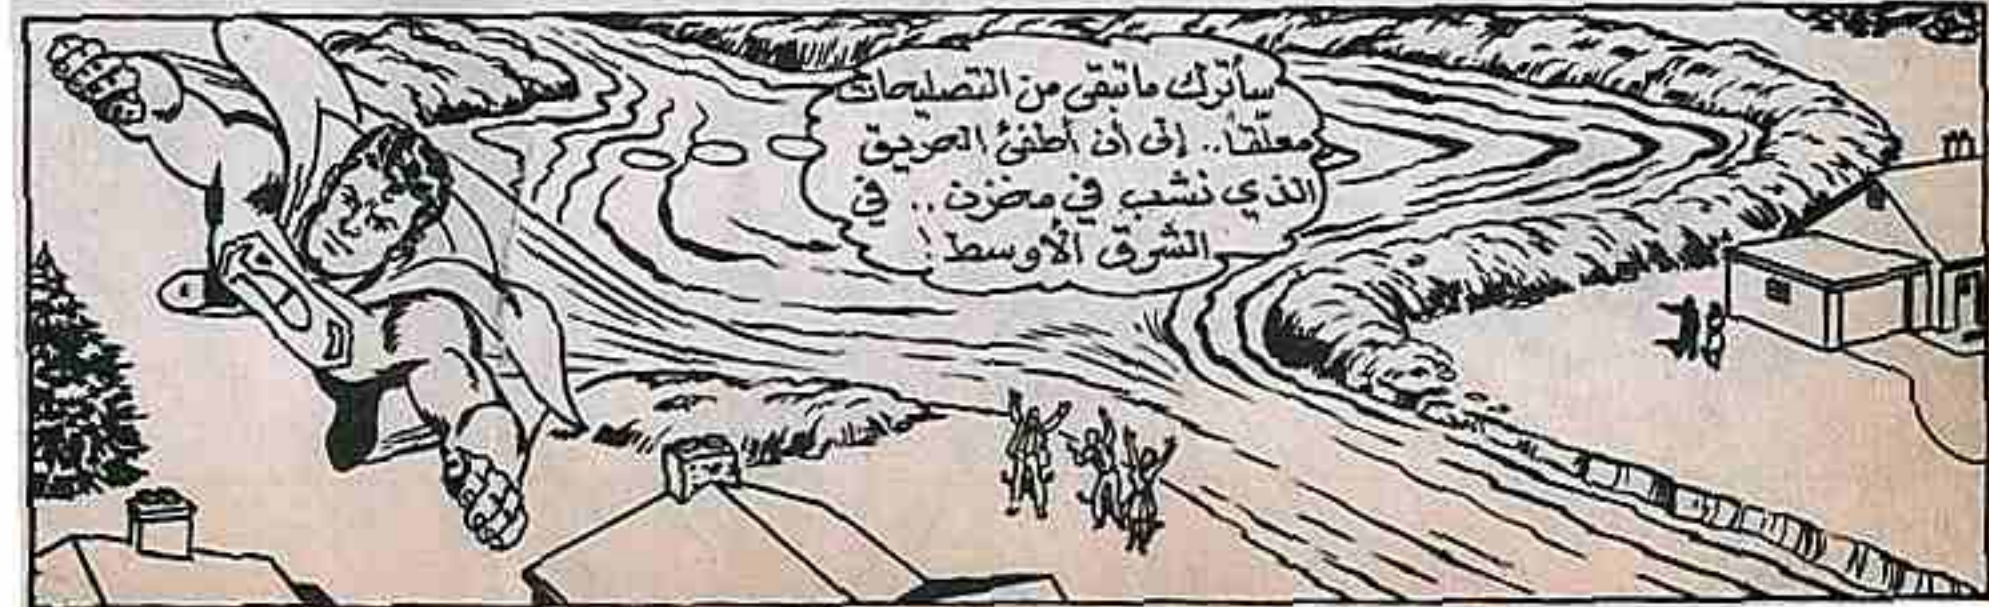 سأترك ما تبقى من التصليحات
معلّقاً.. إلى أن أطفئ الحريق
الذي نشب في مخزن .. في
الشرق الأوسط!